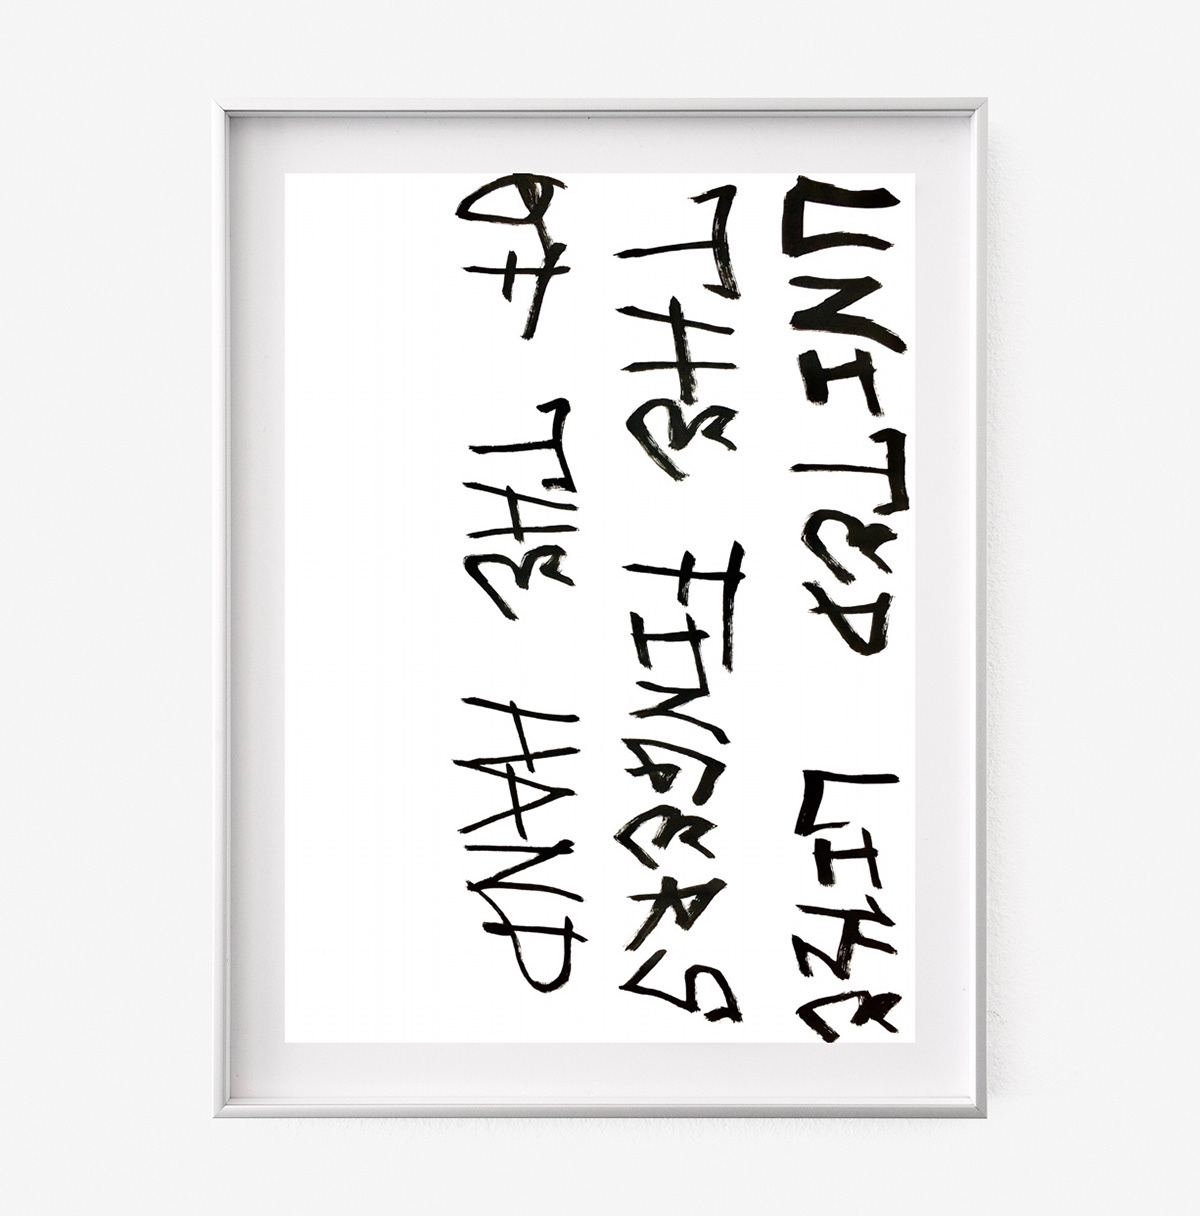 UNITED LIKE
THE FINGERS
OF THE HAND